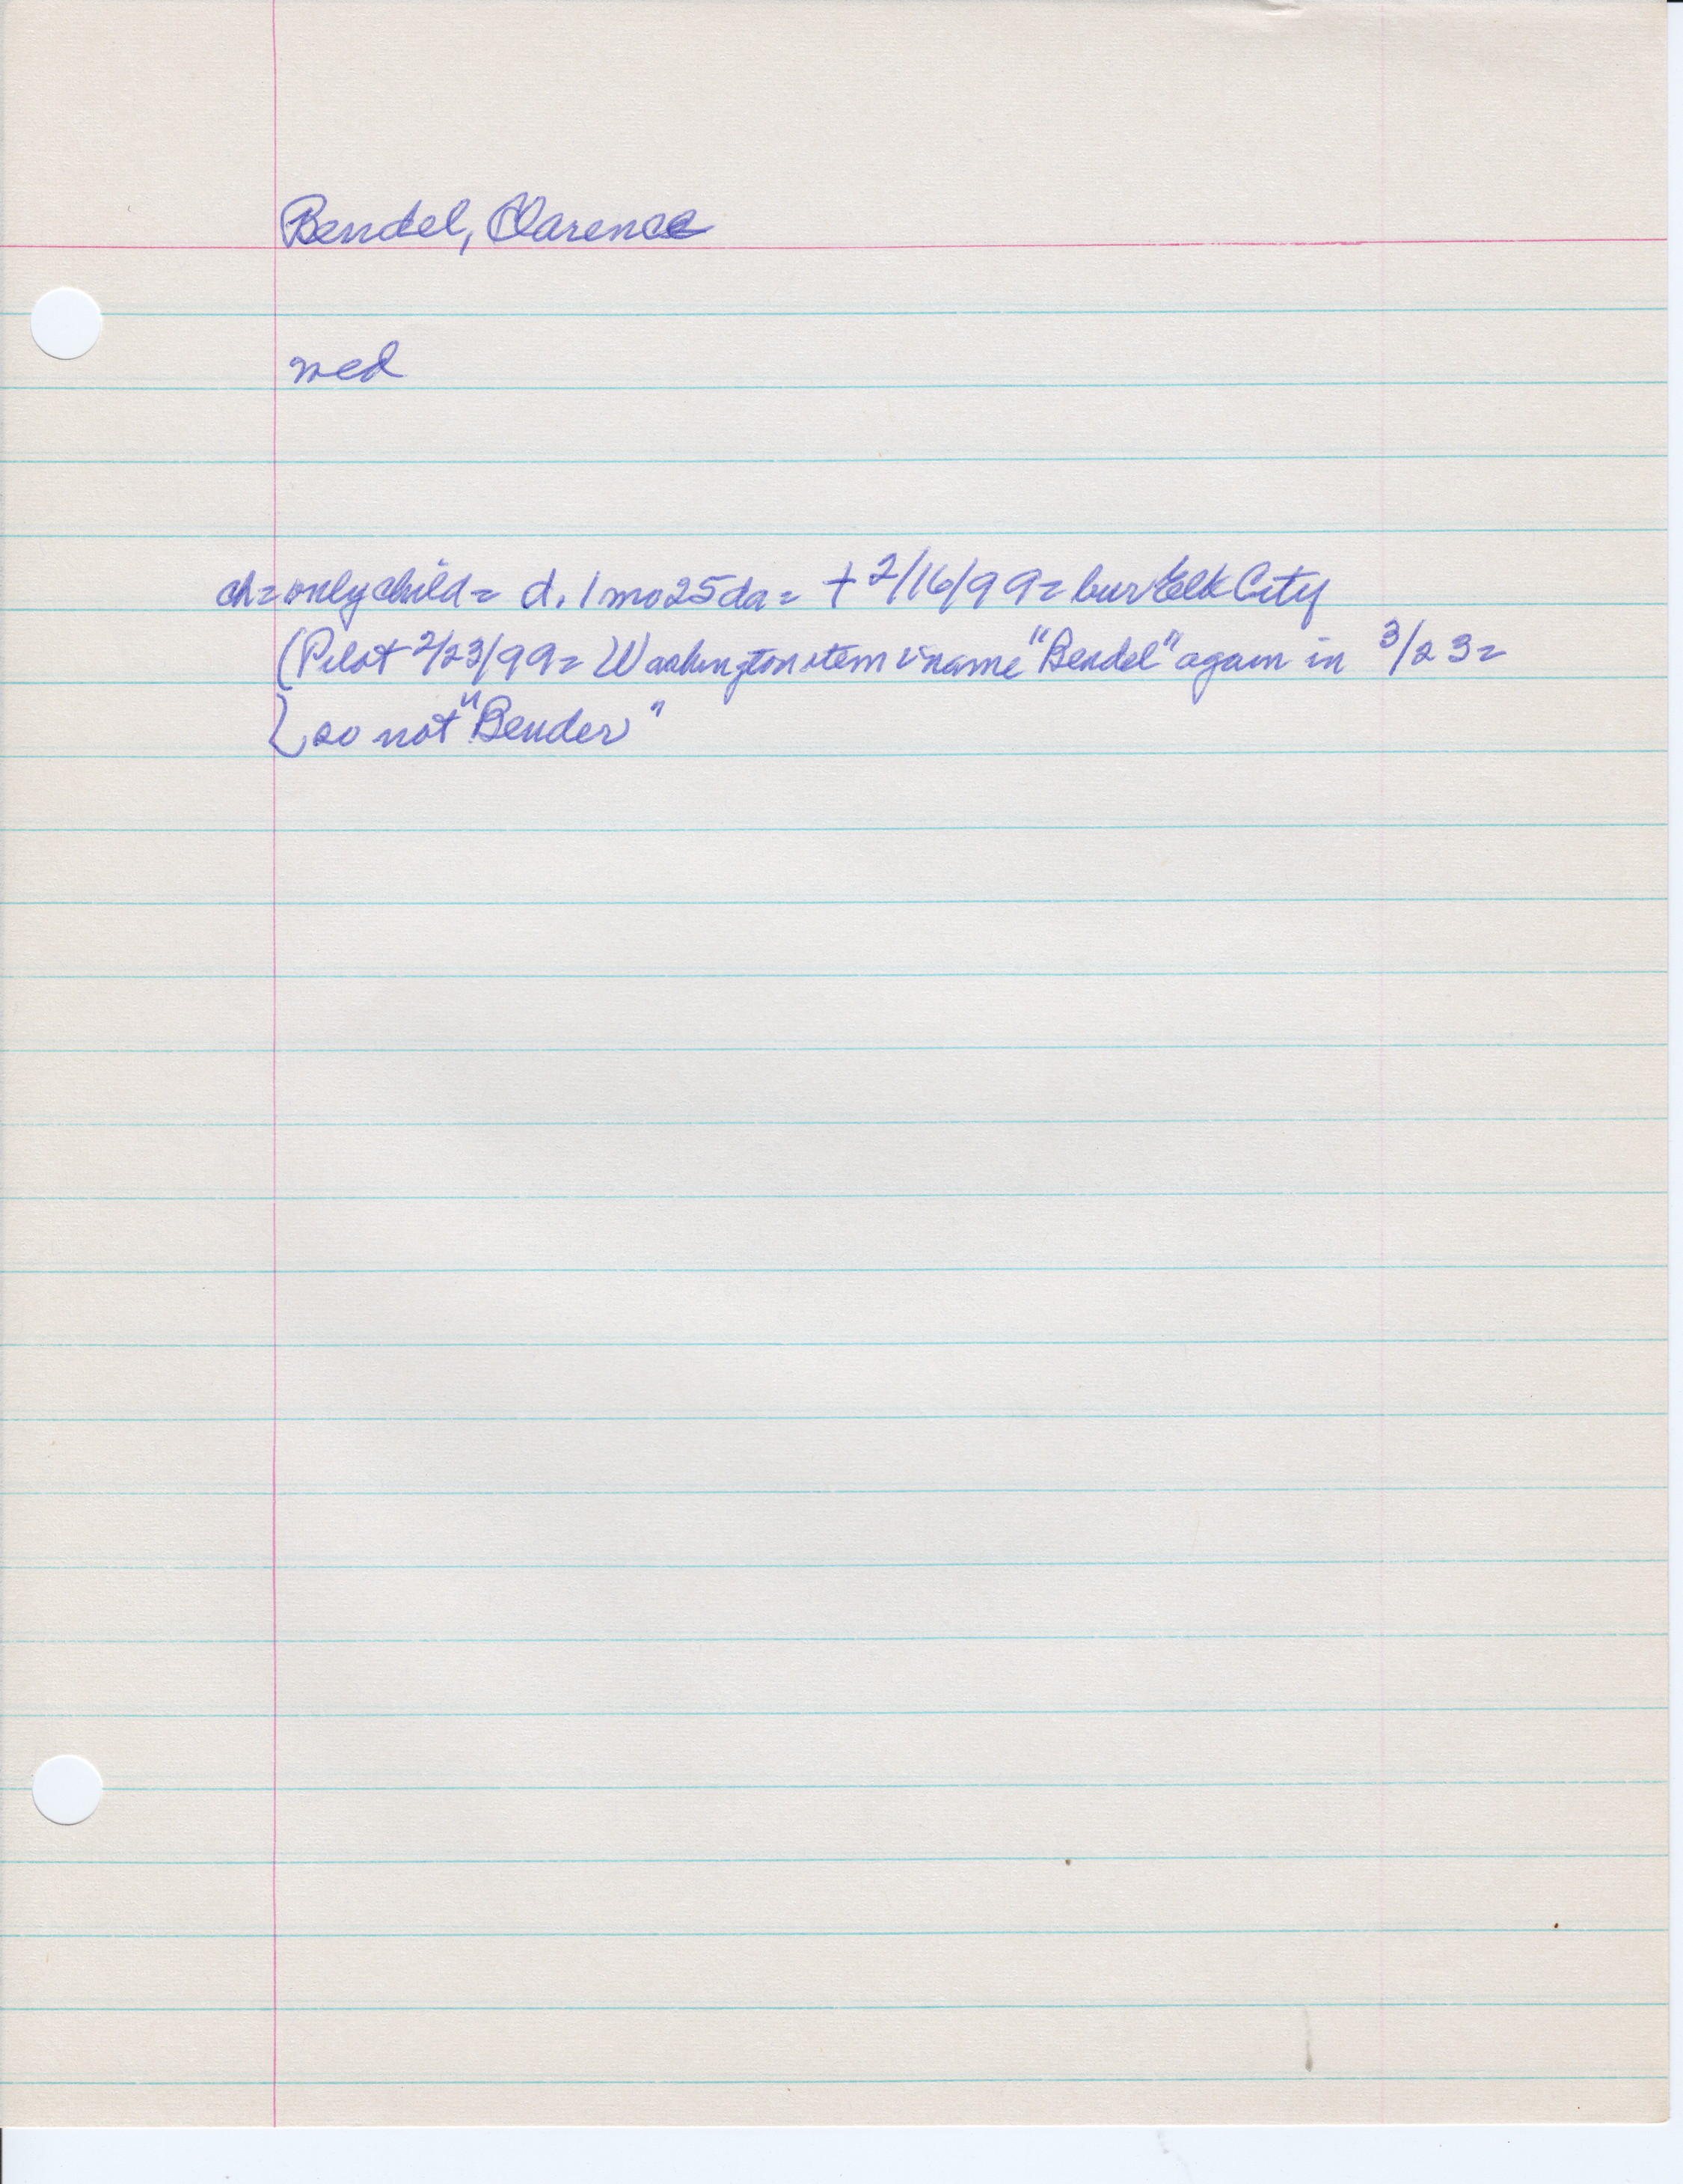 Bendel, Clarence
med
ch = only child = d. 1 mo 25 da = + 2/16/99 = bur Elk City
(Pilot 2/23/99 = Washington item & name "Bendel" again in 3/23 =
so not "Bender"